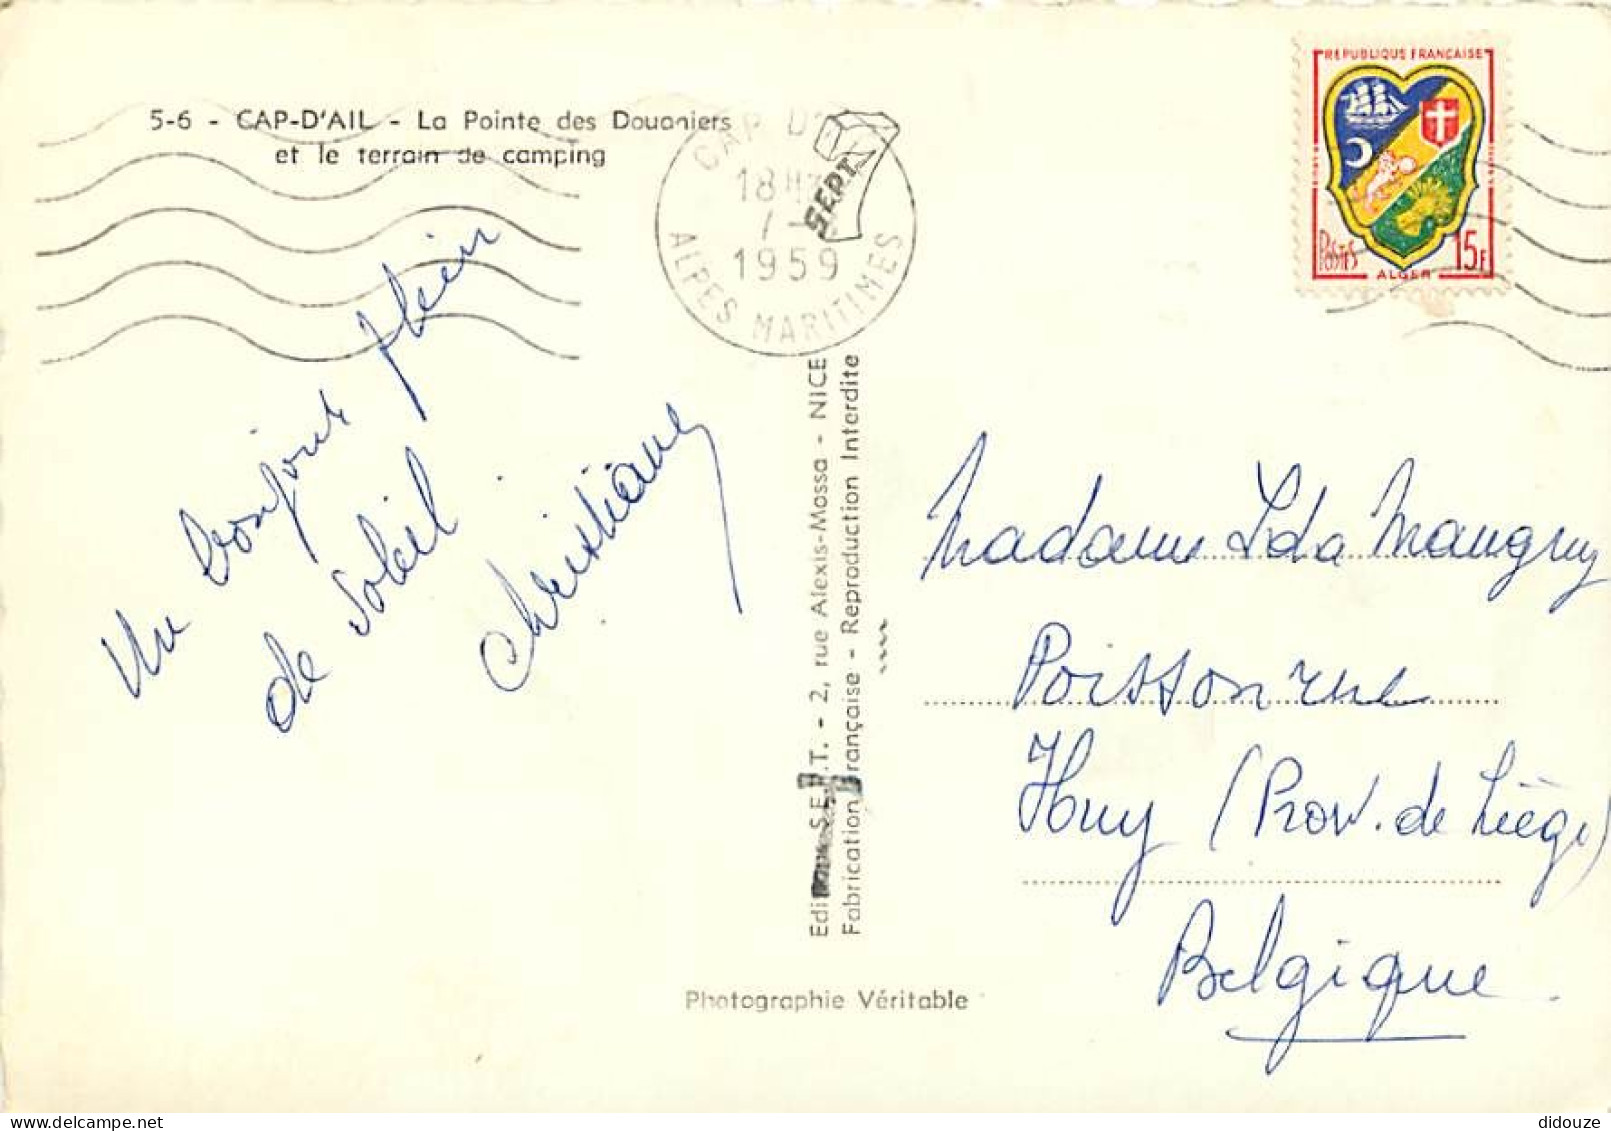 5-6 - CAP-D'AIL - La Pointe des Douaniers
et le terrain de camping
CAP D'
18H
7-
1959
ALPES MARITIMES
SEPT
REPUBLIQUE FRANÇAISE
POSTES
15F
ALGER
Un bonjour plein
de soleil
Christiane
S.E.P.T. - 2, rue Alexis-Mossa - NICE
Fabrication Française - Reproduction Interdite
Madame Ida Maugruy
Poisson rue
Huy (Prov. de Liège)
Belgique
Photographie Véritable
didouze